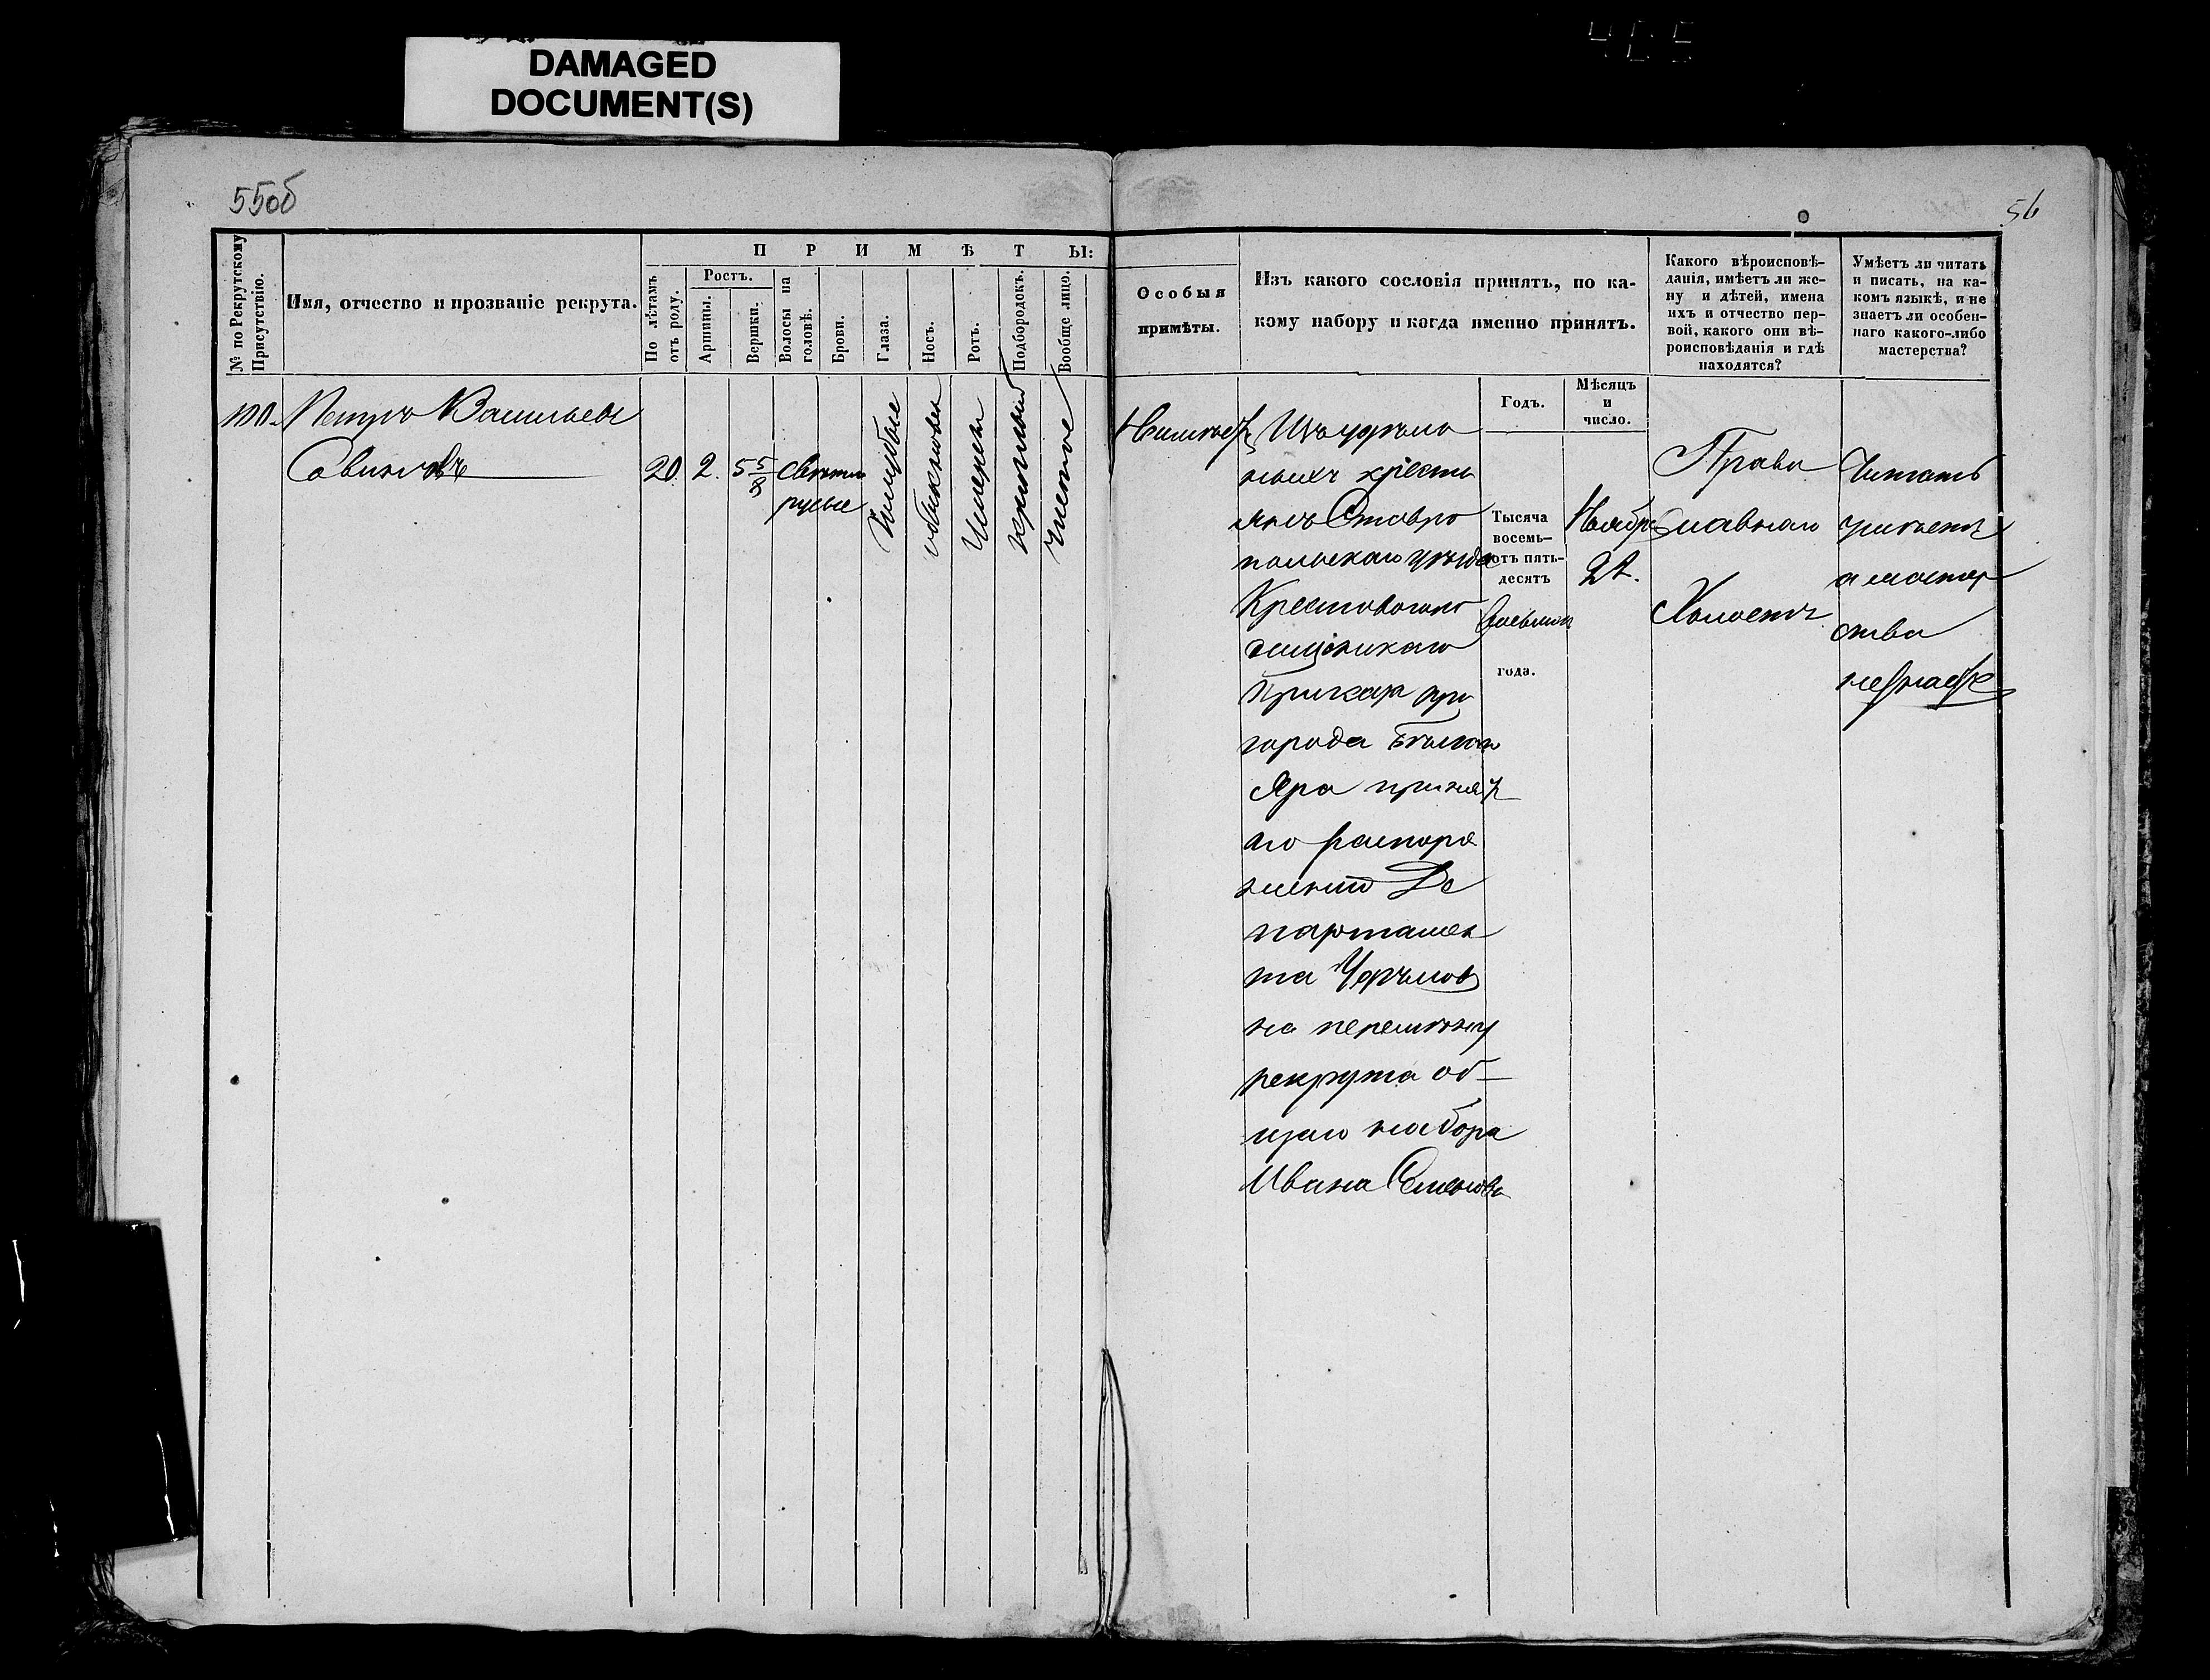 DAMAGED
DOCUMENT(S)
55об
56
П Р И М Ѣ Т Ы:
№ по Рекрутскому
Присутствію.
Имя, отчество и прозваніе рекрута.
По лѣтамъ
отъ роду.
Ростъ.
Аршины.
Вершки.
Волосы на
головѣ.
Брови.
Глаза.
Носъ.
Ротъ.
Подбородокъ.
Вообще лицо.
Особыя
примѣты.
Изъ какого сословія принятъ, по ка-
кому набору и когда именно принятъ.
Какого вѣроисповѣ-
данія, имѣетъ ли же-
ну и дѣтей, имена
ихъ и отчество пер-
вой, какого они вѣ-
роисповѣданія и гдѣ
находятся?
Умѣетъ ли читать
и писать, на ка-
комъ языкѣ, и не
знаетъ ли особен-
наго какого-либо
мастерства?
Годъ.
Мѣсяцъ
и
число.
100. Петръ Васильевъ
Савиновъ
20.
2.
5 5/8
свѣтло
русые
Голубые
обыкновен
Умерен
круглый
чистое
Неимеетъ
Изъ удѣль
ныхъ кресть
янъ Ставро
польскаго уѣзда
Крестово
скаго
Приказа при
города Бѣлаго
Яра принятъ
по распоря
женію Де
партамен
та Удѣловъ
на перемѣну
рекрута об-
щаго набора
Ивана Семенова
Тысяча
восемь-
сотъ пять-
десятъ
осьмаго
года.
Ноябр
21.
Право
славнаго
Холостъ
Читать
умѣетъ
а мастер
ства
незнаетъ